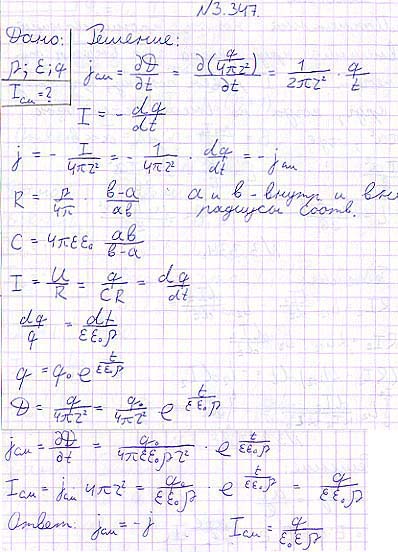 N 3.347.
Дано: Решение:
ρ; ε; q
Iсм = ?
jсм = ∂D/∂t = ∂(q/4πr²)/∂t = 1/2πr² · q/t
I = - dq/dt
j = - I/4πr² = - 1/4πr² · dq/dt = - jсм
R = ρ/4π · (в-а)/ав а и в - внутр и вне
радиусы соотв.
C = 4πεε₀ ав/(в-а)
I = U/R = q/CR = dq/dt
dq/q = dt/εε₀ρ
q = q₀ e^(t/εε₀ρ)
D = q/4πr² = q₀/4πr² e^(t/εε₀ρ)
jсм = ∂D/∂t = q₀/4πεε₀ρr² · e^(t/εε₀ρ)
Iсм = jсм · 4πr² = q₀/εε₀ρ · e^(t/εε₀ρ) = q/εε₀ρ
Ответ: jсм = - j Iсм = q/ε₀ερ